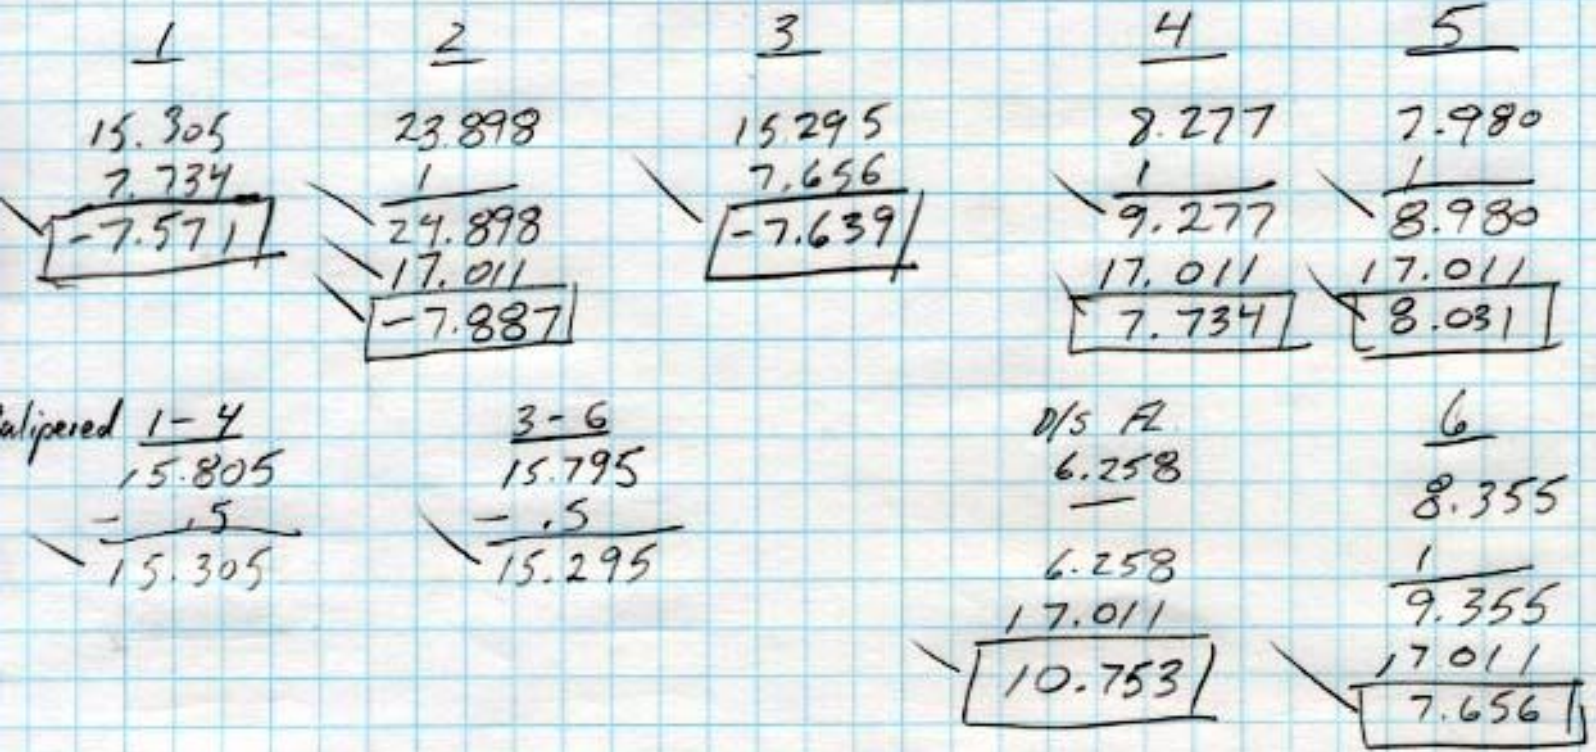 1
15.305
7.734
-7.571
2
23.898
1
24.898
17.011
-7.887
3
15.295
7.656
-7.639
4
8.277
1
9.277
17.011
7.734
5
7.980
1
8.980
17.011
8.031
alipered 1-4
15.805
- .5
15.305
3-6
15.795
- .5
15.295
D/S FL.
6.258
—
6.258
17.011
10.753
6
8.355
1
9.355
17 011
7.656